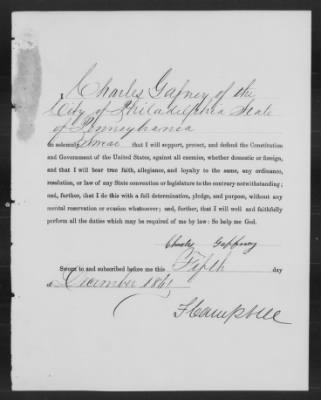 I Charles Gafney of the
City of Philadelphia State
of Pennsylvania
do solemnly Swear that I will support, protect, and defend the Constitution
and Government of the United States, against all enemies, whether domestic or foreign,
and that I will bear true faith, allegiance, and loyalty to the same, any ordinance,
resolution, or law of any State convention or legislature to the contrary notwithstanding;
and, further, that I do this with a full determination, pledge, and purpose, without any
mental reservation or evasion whatsoever; and, further, that I will well and faithfully
perform all the duties which may be required of me by law: So help me God.
Charles Gaffney
Sworn to and subscribed before me this Fifth day
of December 1861
F Campbell